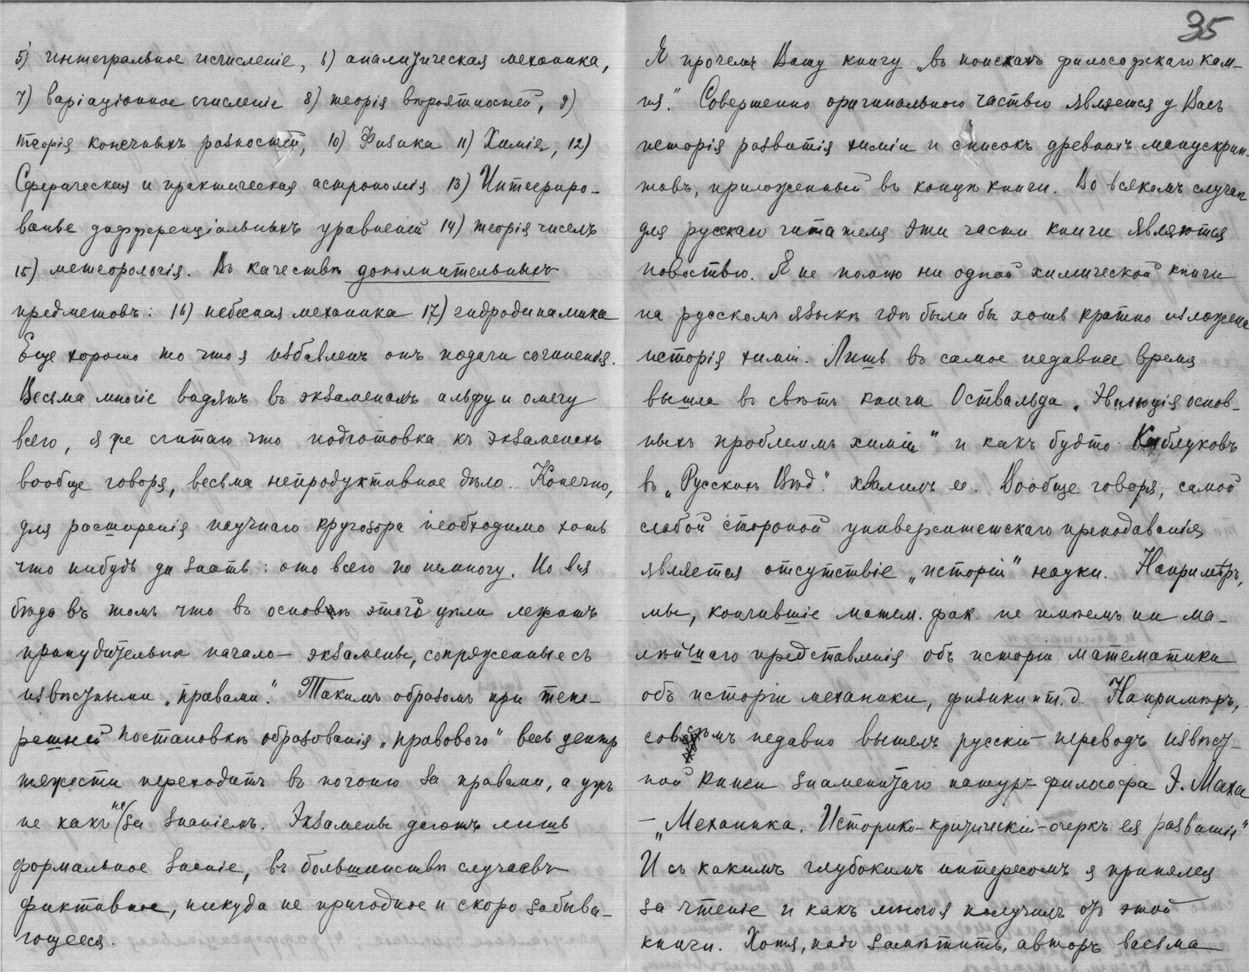 5) интегральное исчисленіе, 6) аналитическая механика,
7) варіаціонное счисленіе 8) теорія вѣроятностей, 9)
теорія конечныхъ разностей, 10) Физика 11) Химія, 12)
Сферическая и практическая астрономія 13) Интегриро-
ваніе дифференціальныхъ уравненій 14) теорія чиселъ
15) метеорологія. Въ качествѣ дополнительныхъ
предметовъ: 16) небесная механика 17) гидродинамика
Еще хорошо то что я избавленъ отъ подачи сочиненія.
Весьма многіе видятъ въ экзаменахъ альфу и омегу
всего, я же считаю что подготовка къ экзаменамъ
вообще говоря, весьма непродуктивное дѣло. Конечно,
для расширенія научнаго кругозора необходимо хоть
что нибудь да знать: ото всего по немногу. Но вся
бѣда въ томъ что въ основѣ этого цѣли лежатъ
принудительное начало — экзамены, сопряженные съ
извѣстными „правами". Такимъ образомъ при тепе-
решней постановкѣ образованія „правового" весь центръ
тяжести переходитъ въ погоню за правами, а ужъ
не какъ не за знаніемъ. Экзамены даютъ лишь
формальное знаніе, въ большинствѣ случаевъ
фиктивное, никуда не пригодное и скоро забыва-
ющееся.
35
Я прочелъ Вашу книгу „въ поискахъ философскаго кам-
ня". Совершенно оригинальною частью является у Васъ
исторія развитія химіи и списокъ древнихъ манускрип-
товъ, приложенный въ концѣ книги. Во всякомъ случаѣ
для русскаго читателя эти части книги являются
новостью. Я не помню ни одной химической книги
на русскомъ языкѣ гдѣ была бы хоть кратко изложена
исторія химіи. Лишь въ самое недавнее время
вышла въ свѣтъ книга Оствальда „Эволюція основ-
ныхъ проблемъ химіи" и какъ будто Каблуковъ
въ „Русскихъ Вѣд." хвалилъ ее. Вообще говоря, самой
слабой стороной университетскаго преподаванія
является отсутствіе „исторіи" науки. Напримѣръ,
мы, кончившіе матем. фак. не имѣемъ ни ма-
лѣйшаго представленія объ исторіи математики
объ исторіи механики, физики и т. д. Напримѣръ,
совсѣмъ недавно вышелъ русскій переводъ извѣст-
ной книги знаменитаго натур-философа Э. Маха
— „Механика. Историко-критическій очеркъ ея развитія"
И съ какимъ глубокимъ интересомъ я принялся
за чтеніе и какъ много я получилъ отъ этой
книги. Хотя, надо замѣтить, авторъ весьма